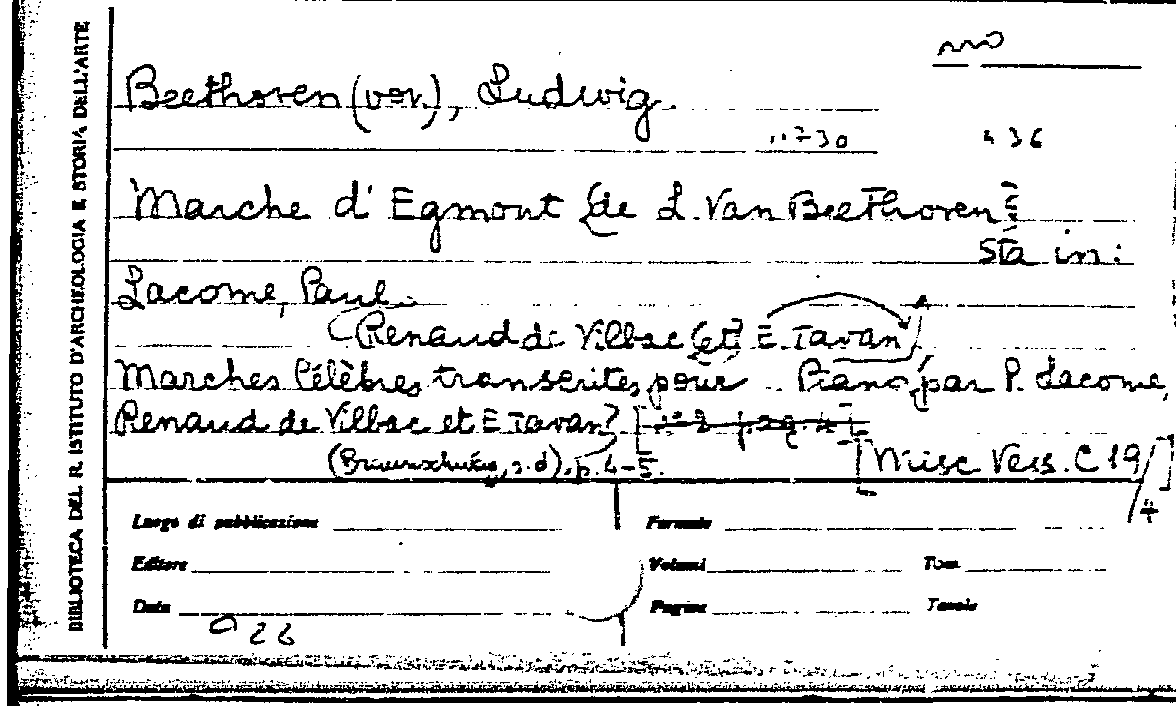 BIBLIOTECA DEL R. ISTITUTO D'ARCHEOLOGIA E STORIA DELL'ARTE
Beethoven (von), Ludwig.
730 436
Marche d'Egmont [de L. Van Beethoven]
Sta in:
Lacome, Paul.
Renaud de Vilbac [et] E. Tavan
Marches Célèbres transcrites pour .. Piano, par P. Lacome,
Renaud de Vilbac et E. Tavan
(Braunschweig, s.d), p. 4-5.
[Misc Vess. C 19/7]
Luogo di pubblicazione Formato
Editore Volumi Tom.
Data Pagine Tavole